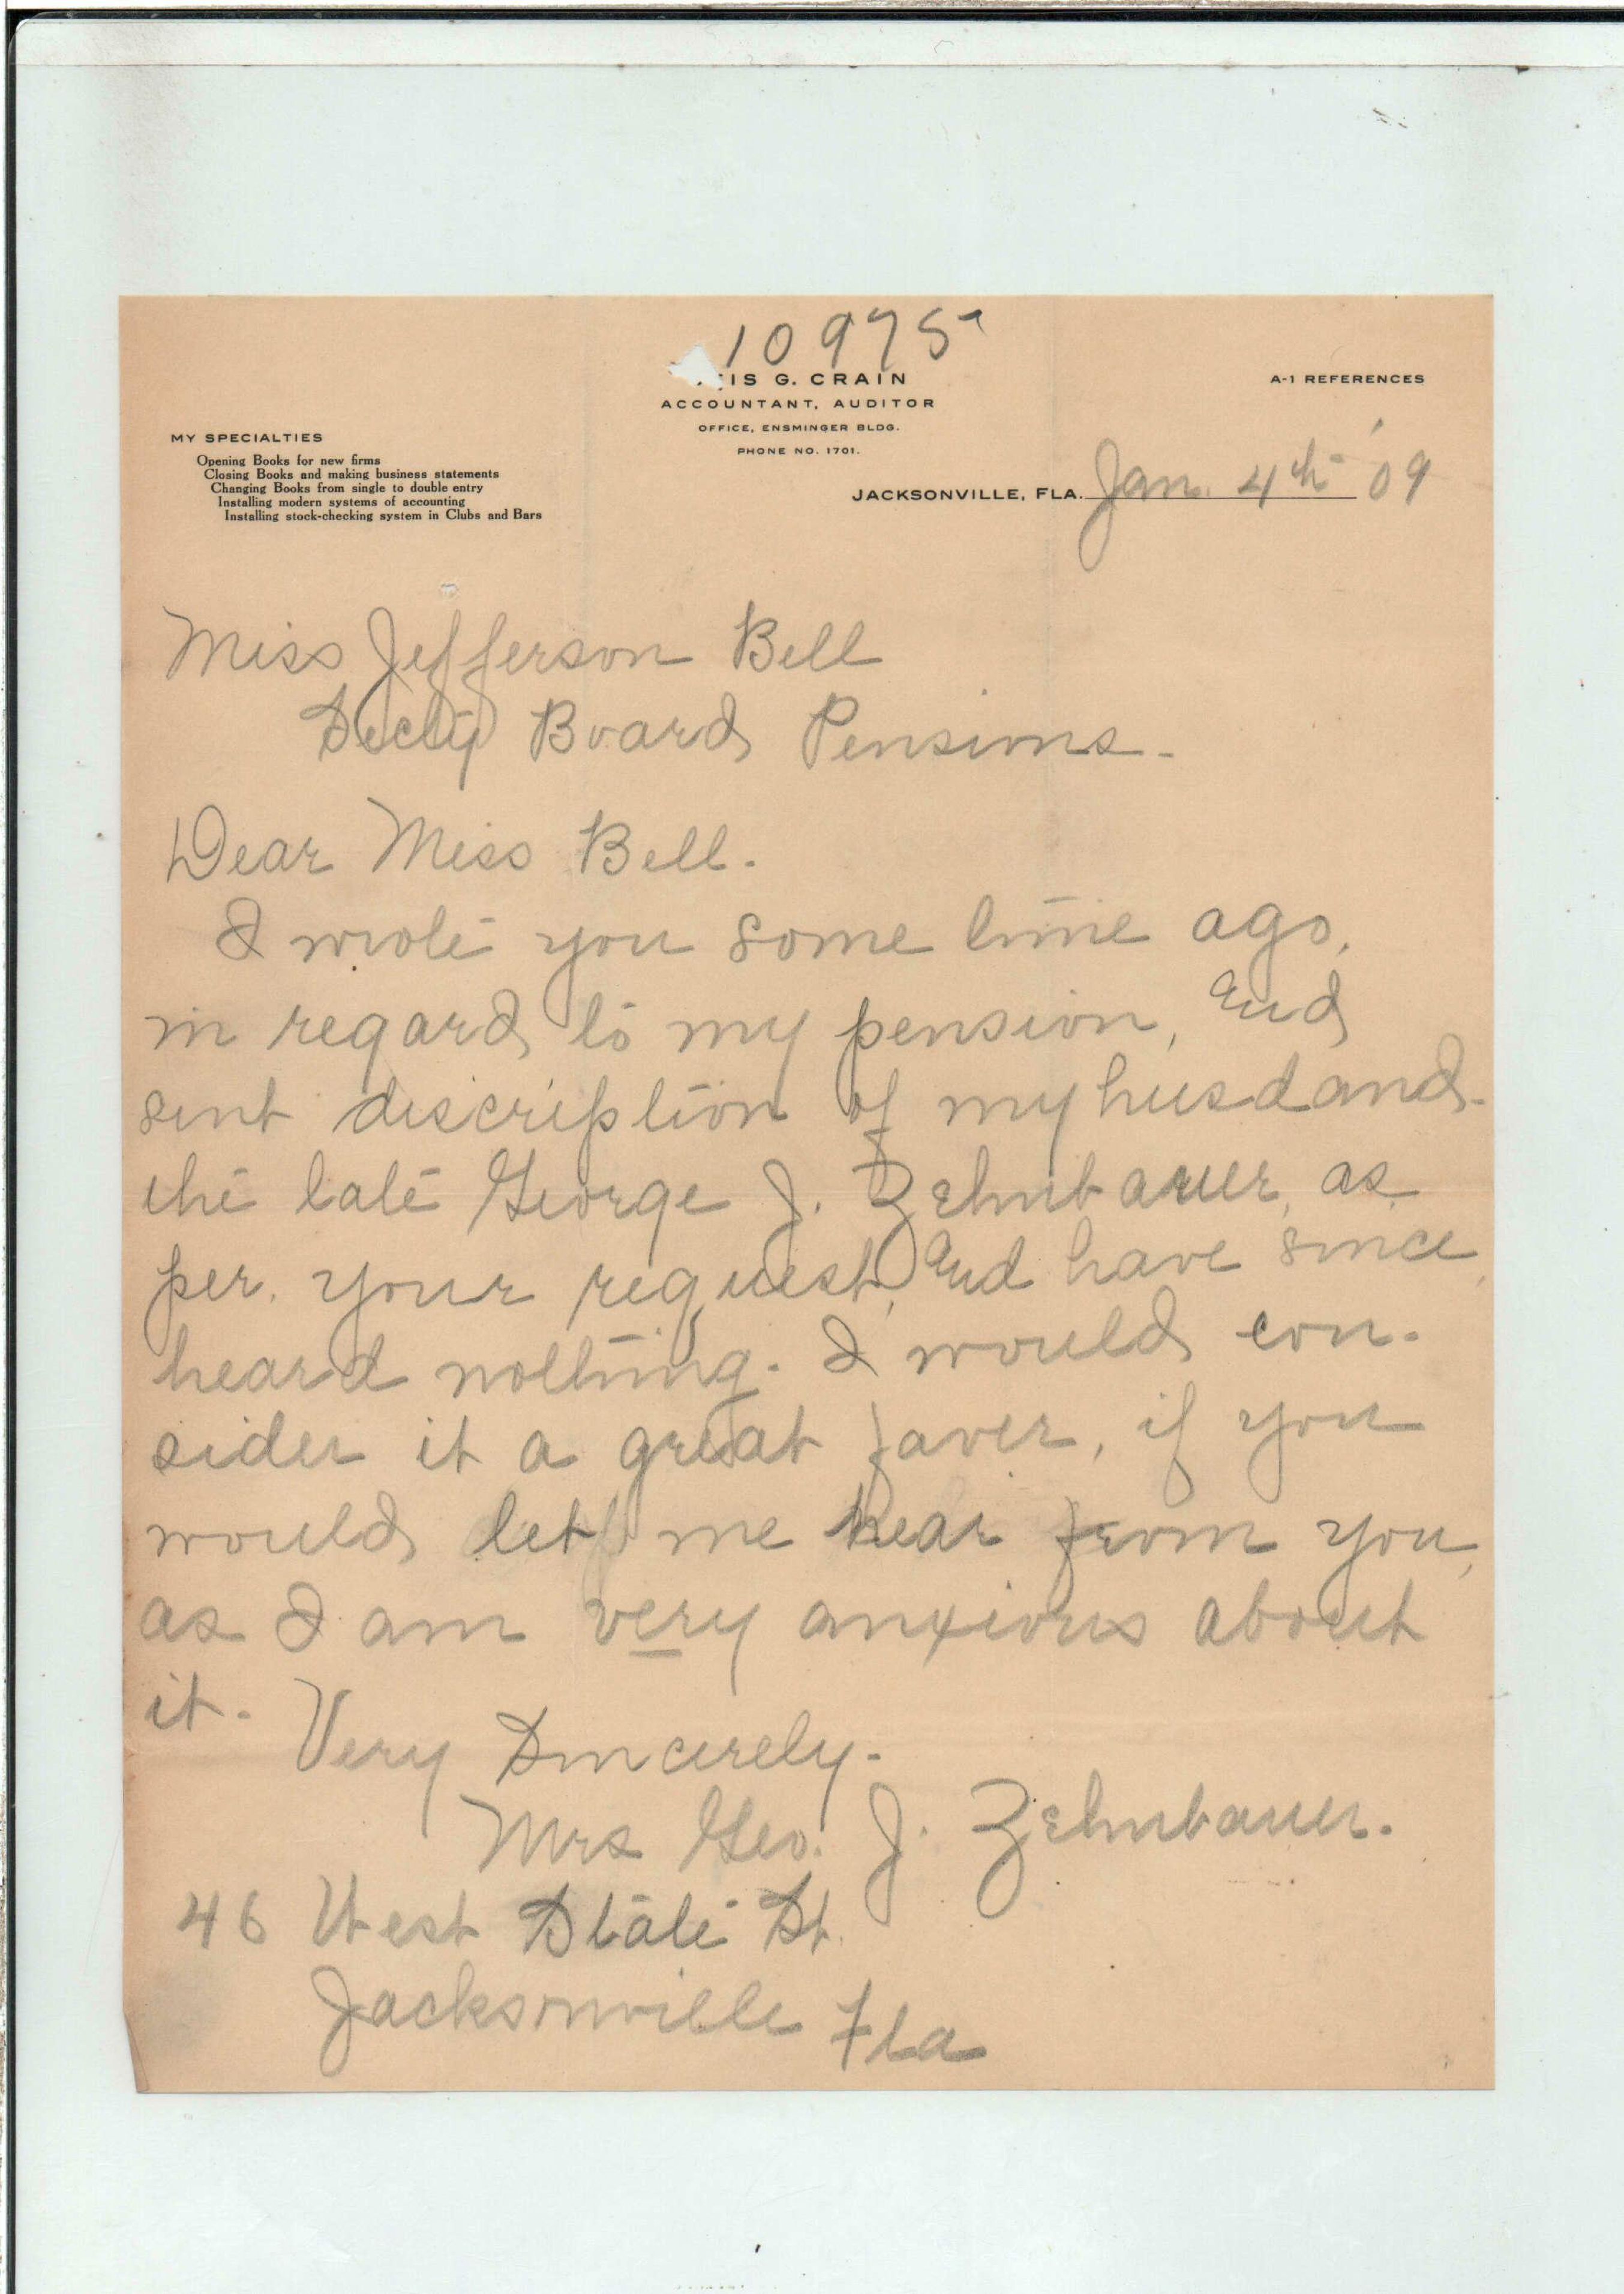 10975
IS G. CRAIN
ACCOUNTANT, AUDITOR
OFFICE, ENSMINGER BLDG.
PHONE NO. 1701.
A-1 REFERENCES
MY SPECIALTIES
Opening Books for new firms
Closing Books and making business statements
Changing Books from single to double entry
Installing modern systems of accounting
Installing stock-checking system in Clubs and Bars
JACKSONVILLE, FLA. Jan. 4th '09
Miss Jefferson Bell
Secty Board Pensions-
Dear Miss Bell.
I wrote you some time ago,
in regard to my pension, and
sent discription of my husdand-
the late George J. Zehnbauer, as
per. your request, and have since,
heard nothing. I would con-
sider it a great faver, if you
would let me hear from you,
as I am very anxious about
it.
Very Sincerely-
Mrs Geo. J. Zehnbauer.
46 West State St.
Jacksonville Fla